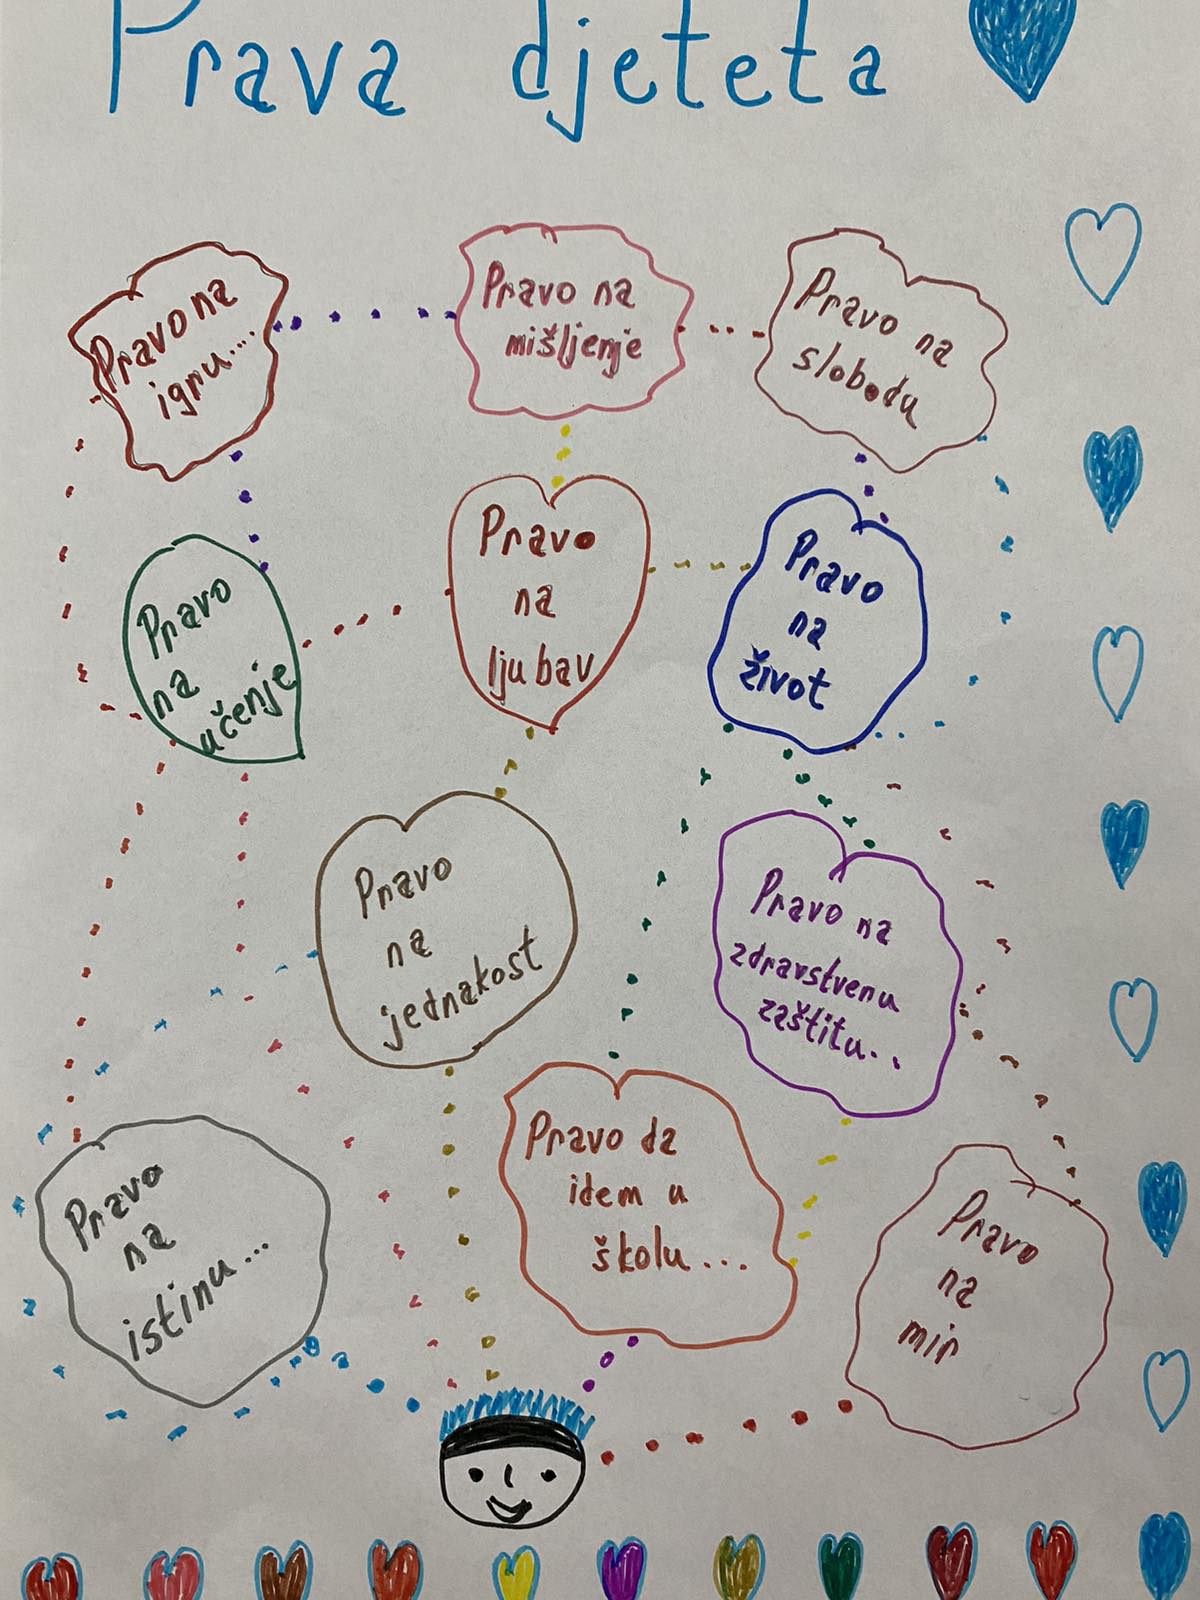 Prava djeteta
Pravo na
igru....
Pravo na
mišljenje
Pravo na
slobodu
Pravo
na
učenje
Pravo
na
ljubav
Pravo
na
život
Pravo
na
jednakost
Pravo na
zdravstvenu
zaštitu...
Pravo
na
istinu...
Pravo da
idem u
školu...
Pravo
na
mir